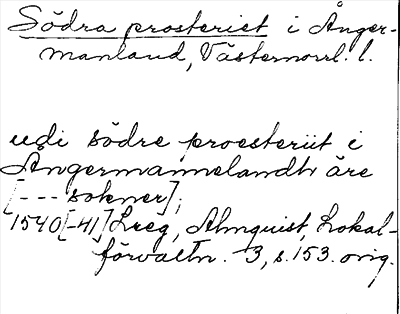 Södra prosteriet i Ånger-
manland, Västernorrl. l.
udi södre proesteriit i
Ångermannelandh äre
[--- sokner];
1540[-41] Lreg, Almquist, Lokal-
förvaltn. 3, s. 153. orig.